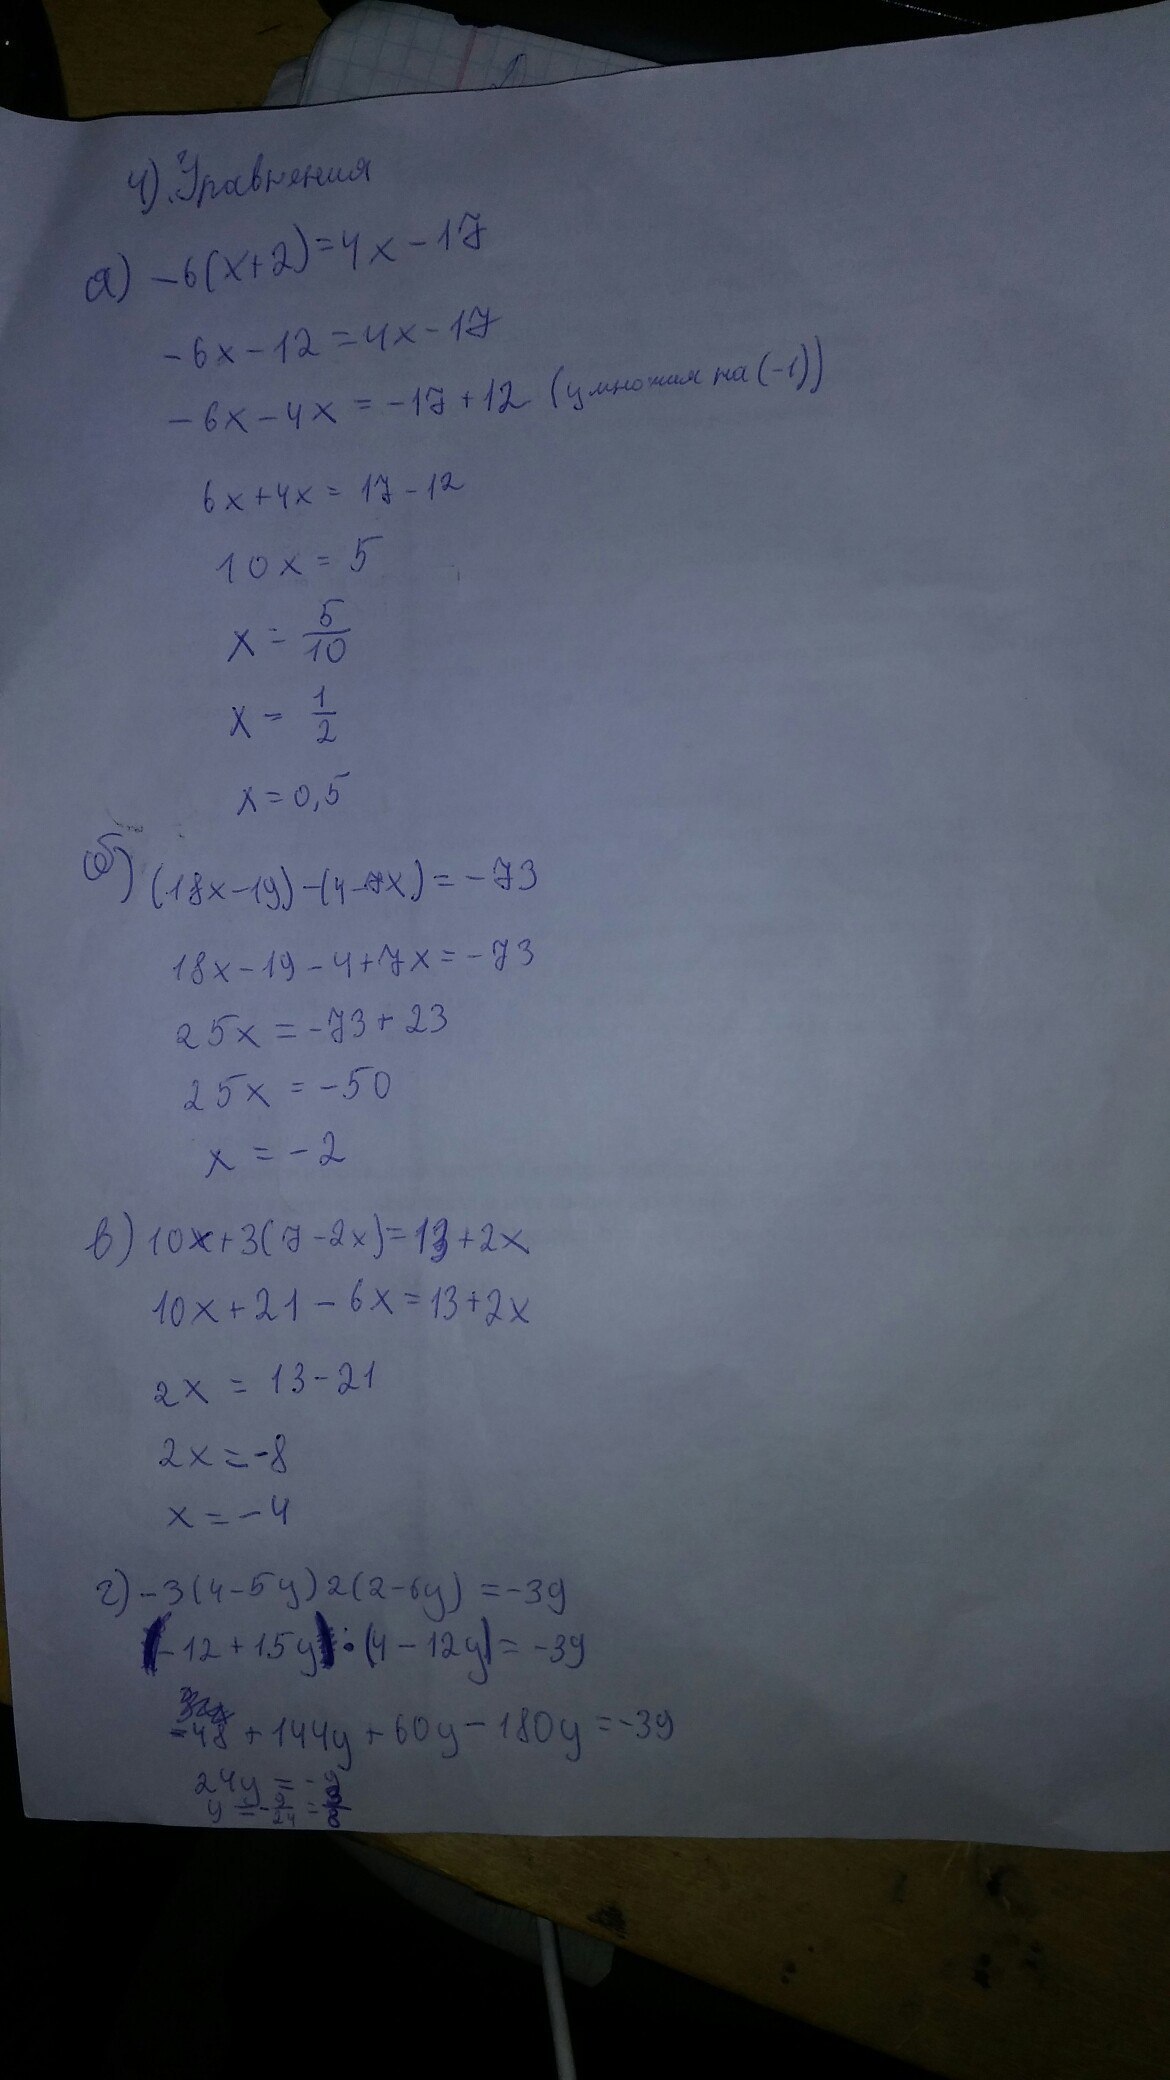 4). Уравнения
а) -6(x+2)=4x-17
-6x-12=4x-17
-6x-4x=-17+12 (умножим на (-1))
6x+4x=17-12
10x=5
x=5/10
x=1/2
x=0,5
б) (18x-19)-(4-7x)=-73
18x-19-4+7x=-73
25x=-73+23
25x=-50
x=-2
в) 10x+3(7-2x)=13+2x
10x+21-6x=13+2x
2x=13-21
2x=-8
x=-4
г) -3(4-5y)2(2-6y)=-39
(-12+15y)·(4-12y)=-39
-48+144y+60y-180y=-39
24y=-9
y=-9/24=